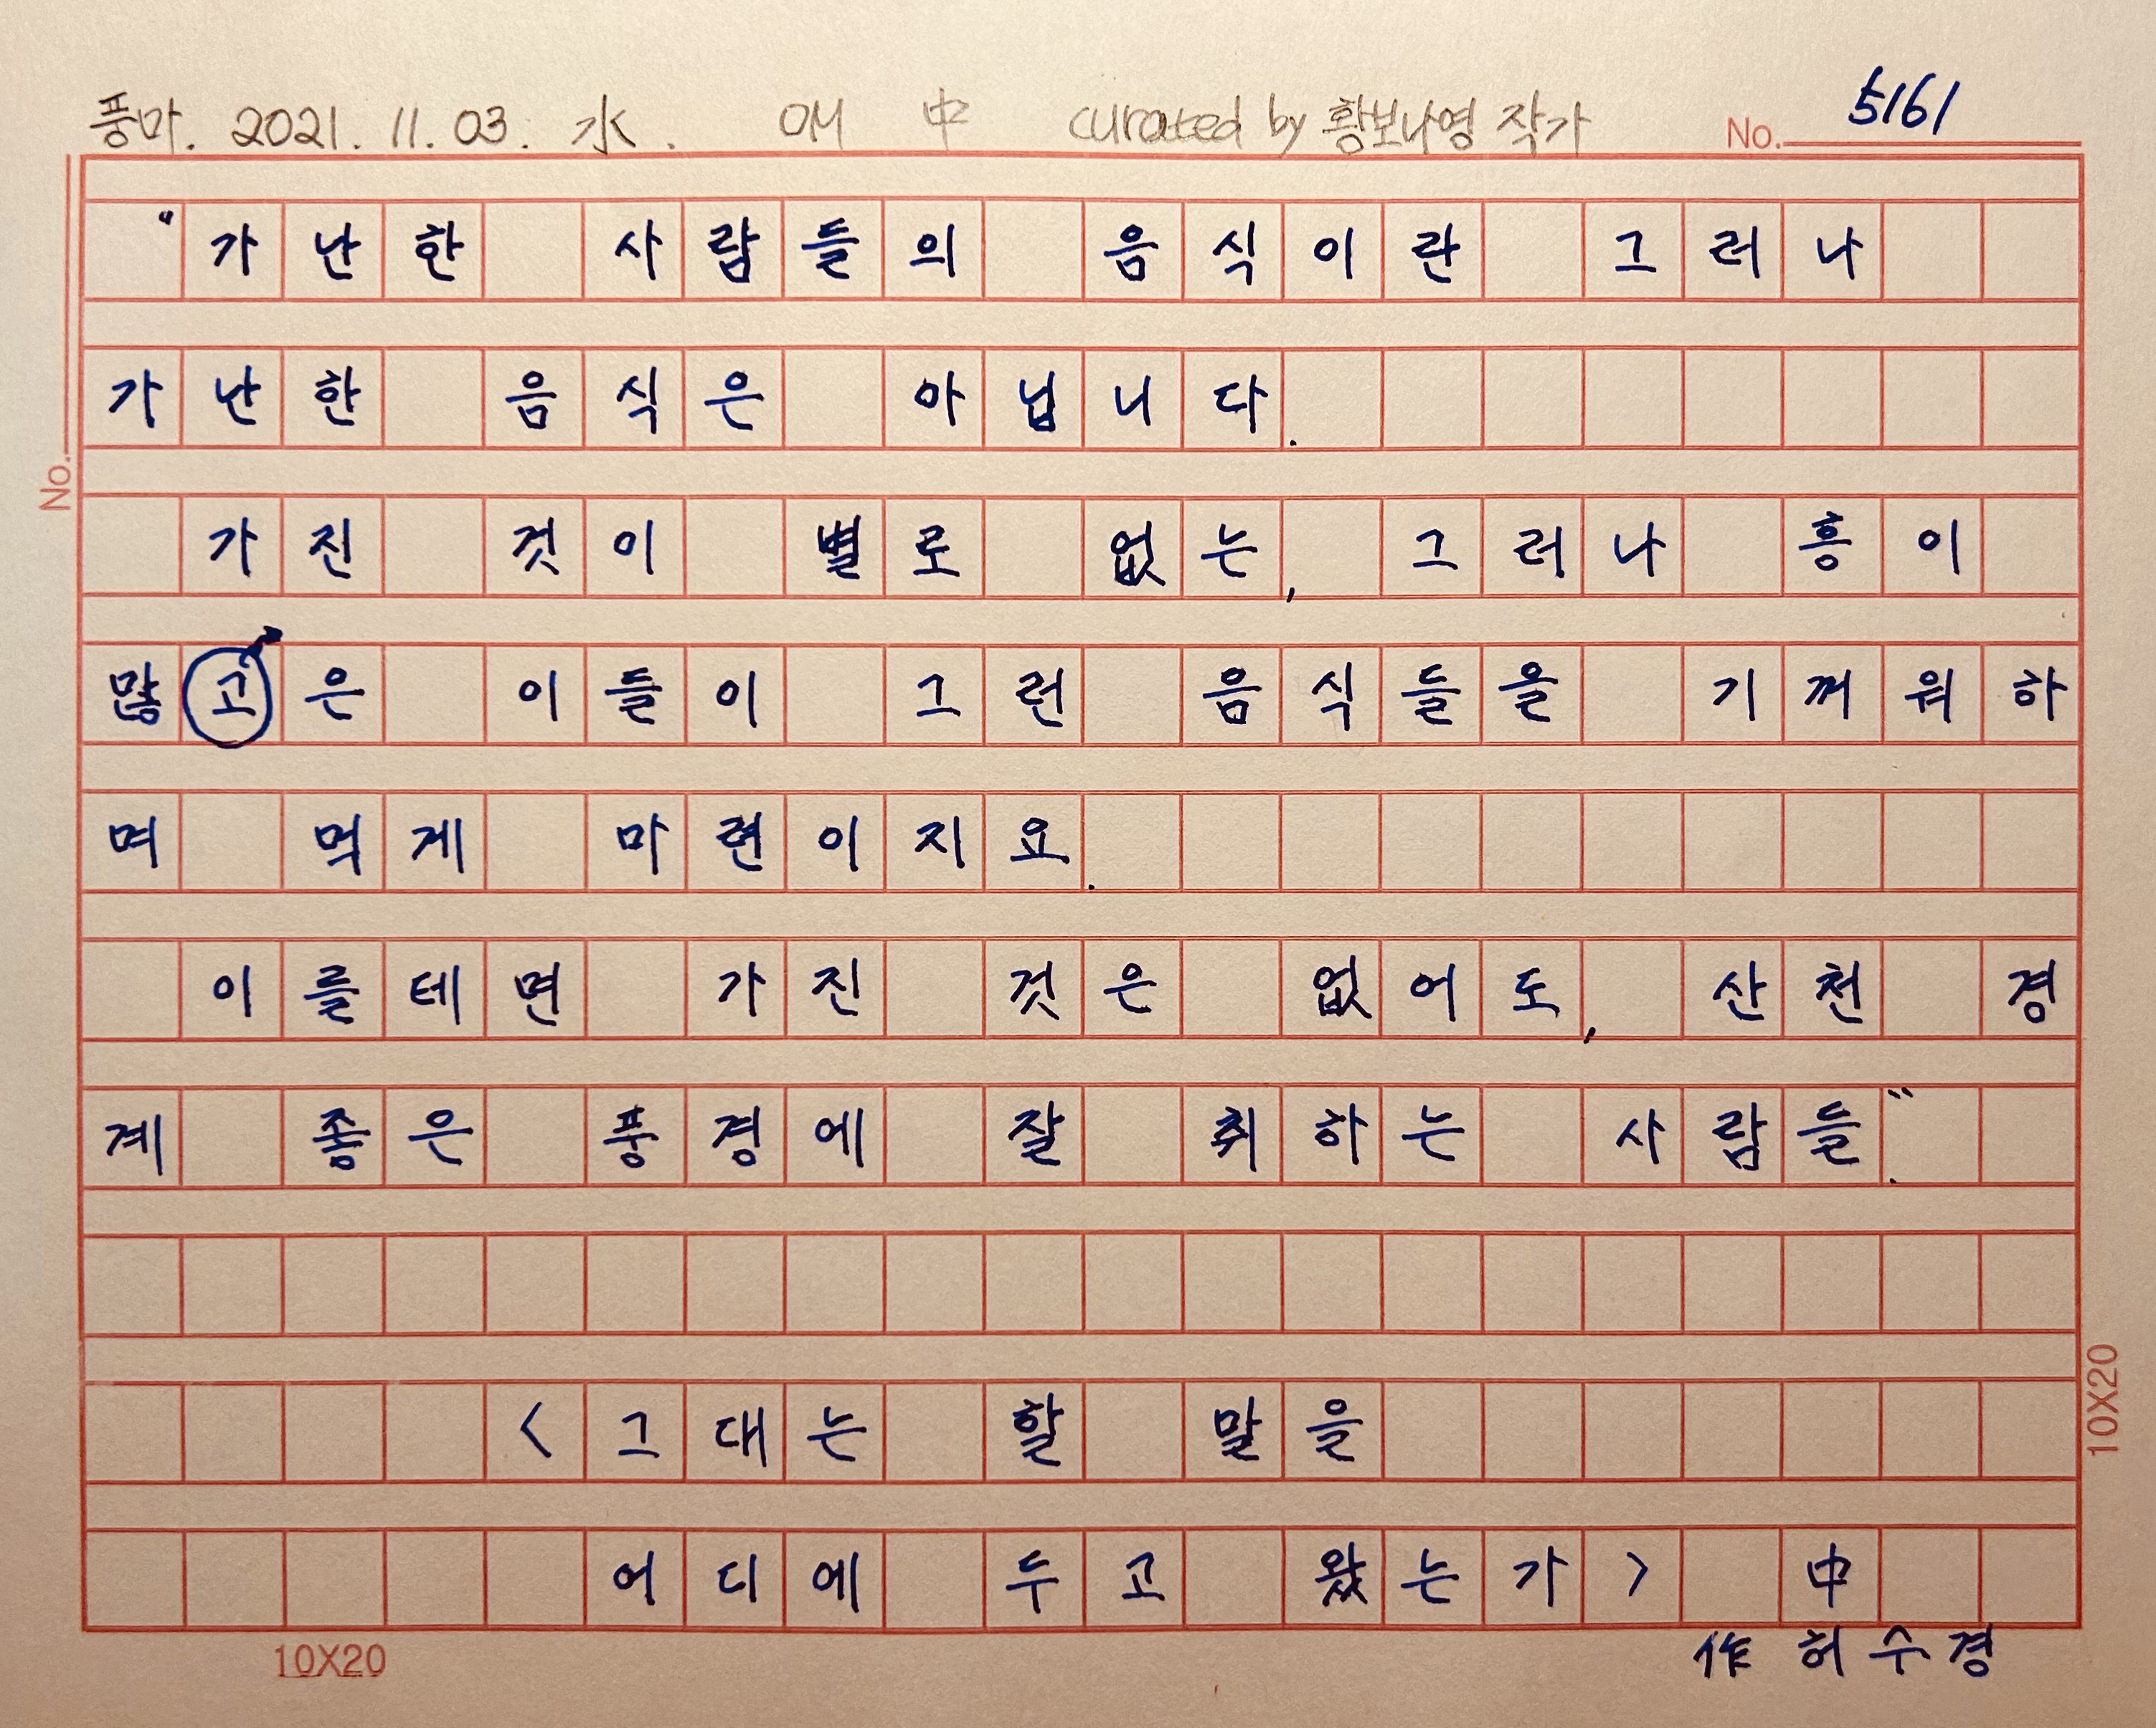 풍마. 2021. 11. 03. 水. OM 中 curated by 황보나영 작가 No. 5161
"가난한 사람들의 음식이란 그러나
가난한 음식은 아닙니다.
가진 것이 별로 없는, 그러나 흥이
많고은 이들이 그런 음식들을 기꺼워하
며 먹게 마련이지요.
이를테면 가진 것은 없어도, 산천 경
계 좋은 풍경에 잘 취하는 사람들."
<그대는 할 말을
어디에 두고 왔는가> 中
作 허수경
No.
10X20
10X20